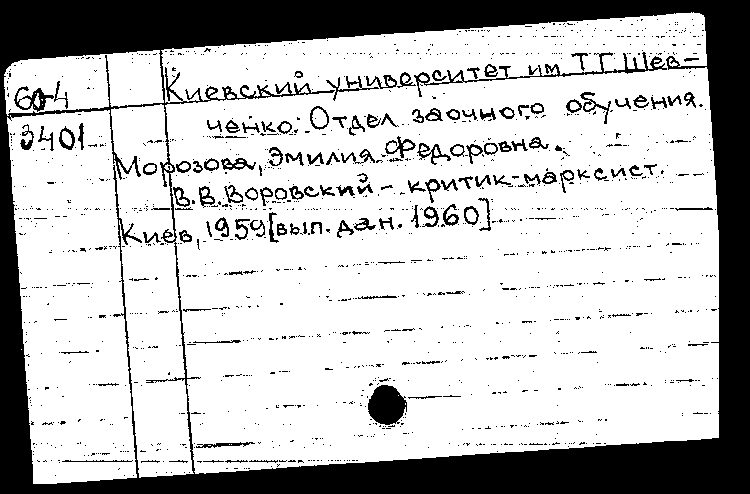 60-4
3401
Киевский университет им. Т.Г. Шев-
ченко. Отдел заочного обучения.
Морозова, Эмилия Федоровна.
В.В. Воровский - критик-марксист.
Киев, 1959 [вып. дан. 1960]